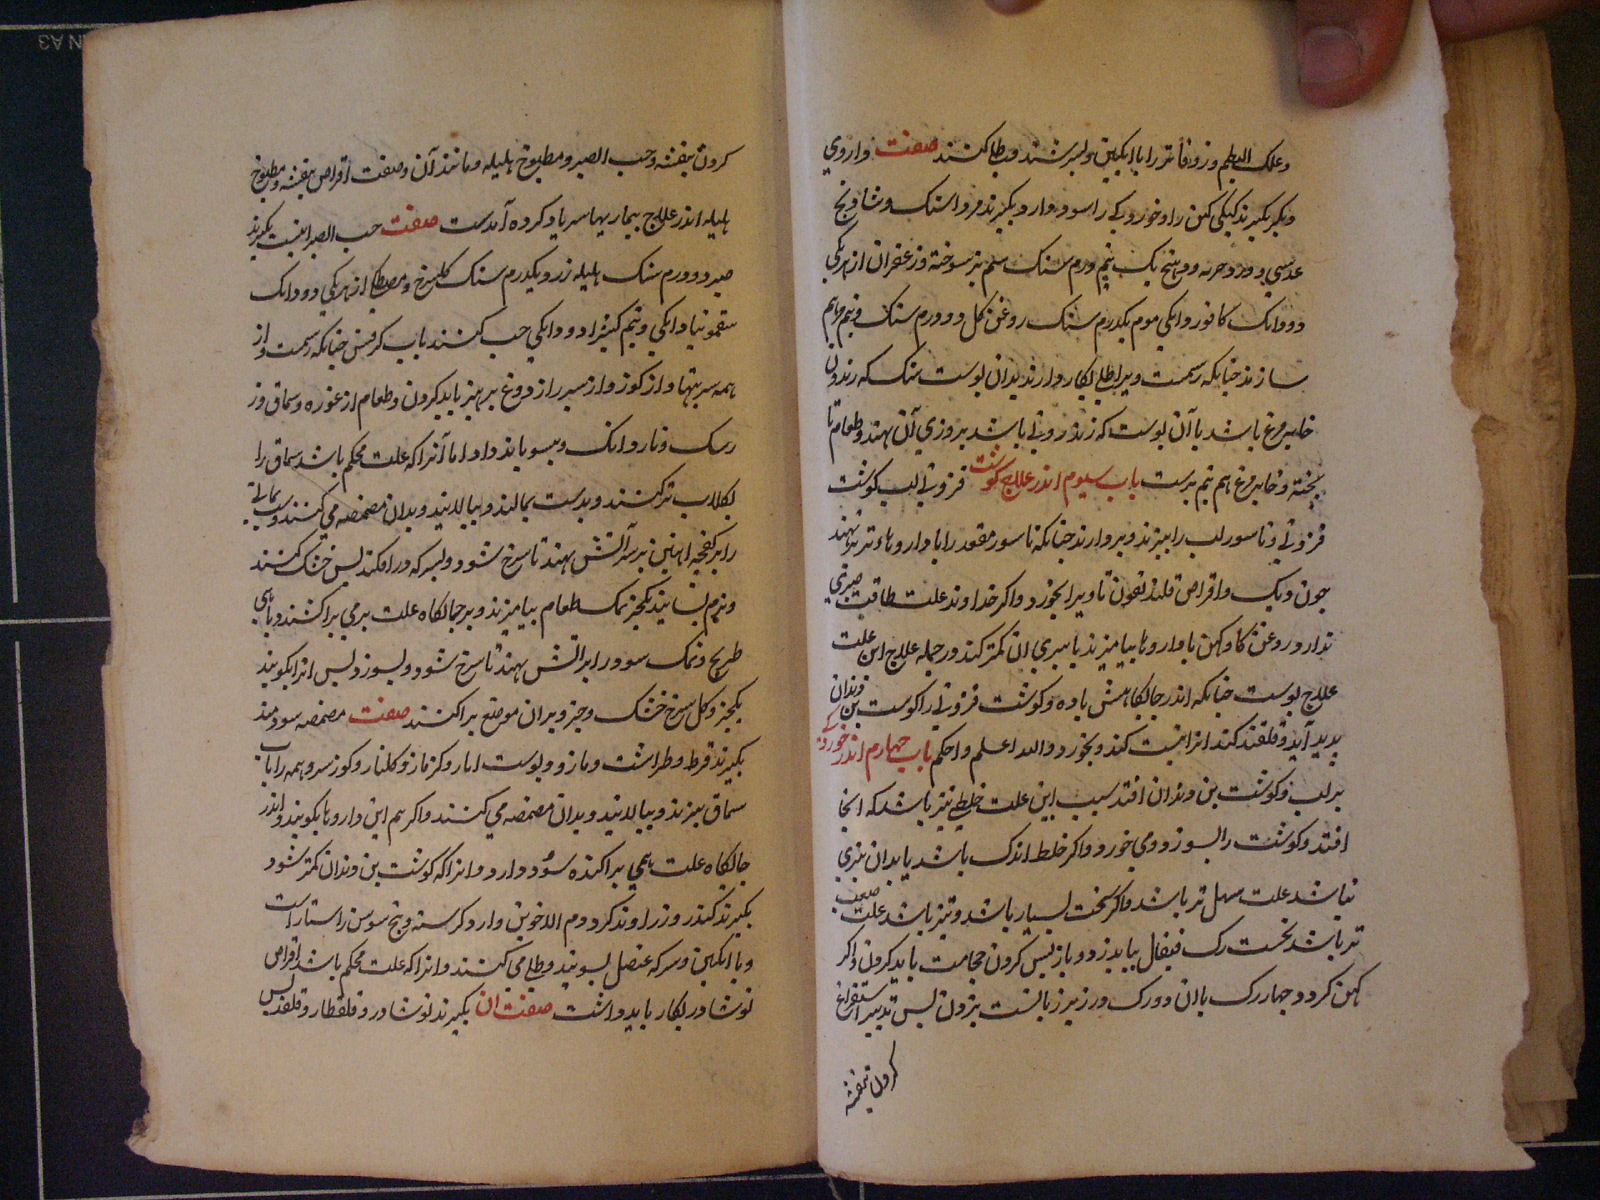 وعلک البطم وزوفا تر را با انکبین ولبر شند وطلا کنند صفت داروی
دیکر بکیرند کلیکی کهن را و خورد بکو راسو دوارد بکیرند مرداسنک و شادنج
عدسی و دو نیم درم سنک سم بز سوخته وزعفران از هر یکی
دودانک کافور دانکی موم یکدرم سنک روغن کل دو درم سنک ونیم مرهم
سازند چنانکه رسمست وبرا طلی بکار دارند بدان پوست تنک که اندرون
خایه مرغ باشد یا آن پوست که اندرون نی باشد بر وزی آن نهند وطعام تا
پخته وخایه مرغ هم نیم برست باب سیوم اندر علاج کوشت فزونی لب کوشت
فزونی وناسور لب را ببرند وبردارند چنانکه ناسور مقعد را با داروهاء تیز نهند
چون دیک واقراص قلدیقون تا ویرا بخورد واکر خداوند علت طاقت صبری
ندارد روغن کاو کهن با داروها بیامیزند تا تیزی ان کمتر کند ودر جمله علاج این علت
علاج پوست چنانکه اندر جایکاهش یاده وکوشت فزونی را کوست بن دندان
پدید آید وقلقند کند انرا نیست کند وبخورد والله اعلم واحکم باب چهارم اندر خوردکی
بر لب وکوشت بن دندان افتد سبب این علت خلطی تیز باشد که انجا
افتد وکوشت را بسوزد ومی خورد واکر خلط اندک باشد یا بدان تیزی
نباشد علت سهل تر باشد واکر سخت بسیار باشد وتیز باشد علت صعب
تر باشد نخست رک قیفال بباید زد وباز پس کردن حجامت باید کردن واکر
کهن کردد چهاررک با ان دو رک در زیر زبانست بزدن پس تدبیر استفراغ
کردن بنفشه
کردن بنفشه وحب الصبر ومطبوخ هلیله ومانند آن وصفت اقراص بنفشه ومطبوخ
هلیله اندر علاج بیماریها سر یاد کرده آمدست صفت حب الصبر اینست بکیرند
صبر دو درم سنک هلیله زرد یکدرم سنک کل سرخ ومصطکی از هر یکی دودانک
سقمونیا دانکی ونیم کثیرا دو دانکی حب کنند باب کرفس چنانکه رسمست واز
همه شیرینیها واز کوز واز سیر واز دوغ پرهیز باید کردن وطعام از غوره وسماق وز
رشک ونار دانک وبسو باید داد اما آنرا که علت محکم باشد سماق را
بکلاب تر کنند وبدست بمالند وبپالایند وبدان مضمضه می کنند وسمانی
را بر کفچه اهنین بر سر آتش نهند تا سرخ شود ولبسرکه در افکند پس خشک کنند
ونرم بسایند یکجز نمک طعام بیامیزند وبر جایکاه علت بر می پراکنند وماهی
طریخ ونمک سود را بر اتش نهند تا سرخ شود وبسوزد پس انرا بکویند
یکجز وکل سرخ خشک دو جز وبران موضع پراکنند صفت مضمضه سودمند
بکیرند قرط وطراثیث ومازو وپوست انار وکزمازو وکلنار وکوز سرو همه را باب
سماق بپزند وبپالایند وبدان مضمضه می کنند واکر هم این داروها بکویند واندر
جایکاه علت همی پراکنده سود دارد وانرا که کوشت بن دندان کمتر شود
بکیرند کندر وزراوند کرد ودم الاخوین وارد کرسنه وبیخ سوسن راستاراست
وبا انکبین وسرکه عنصل بسویند وطلی می کنند وانرا که علت محکم باشد اقراص
نوشادر بکار باید داشت صفت ان بکیرند نوشادر وقلقطار وقلقند پس